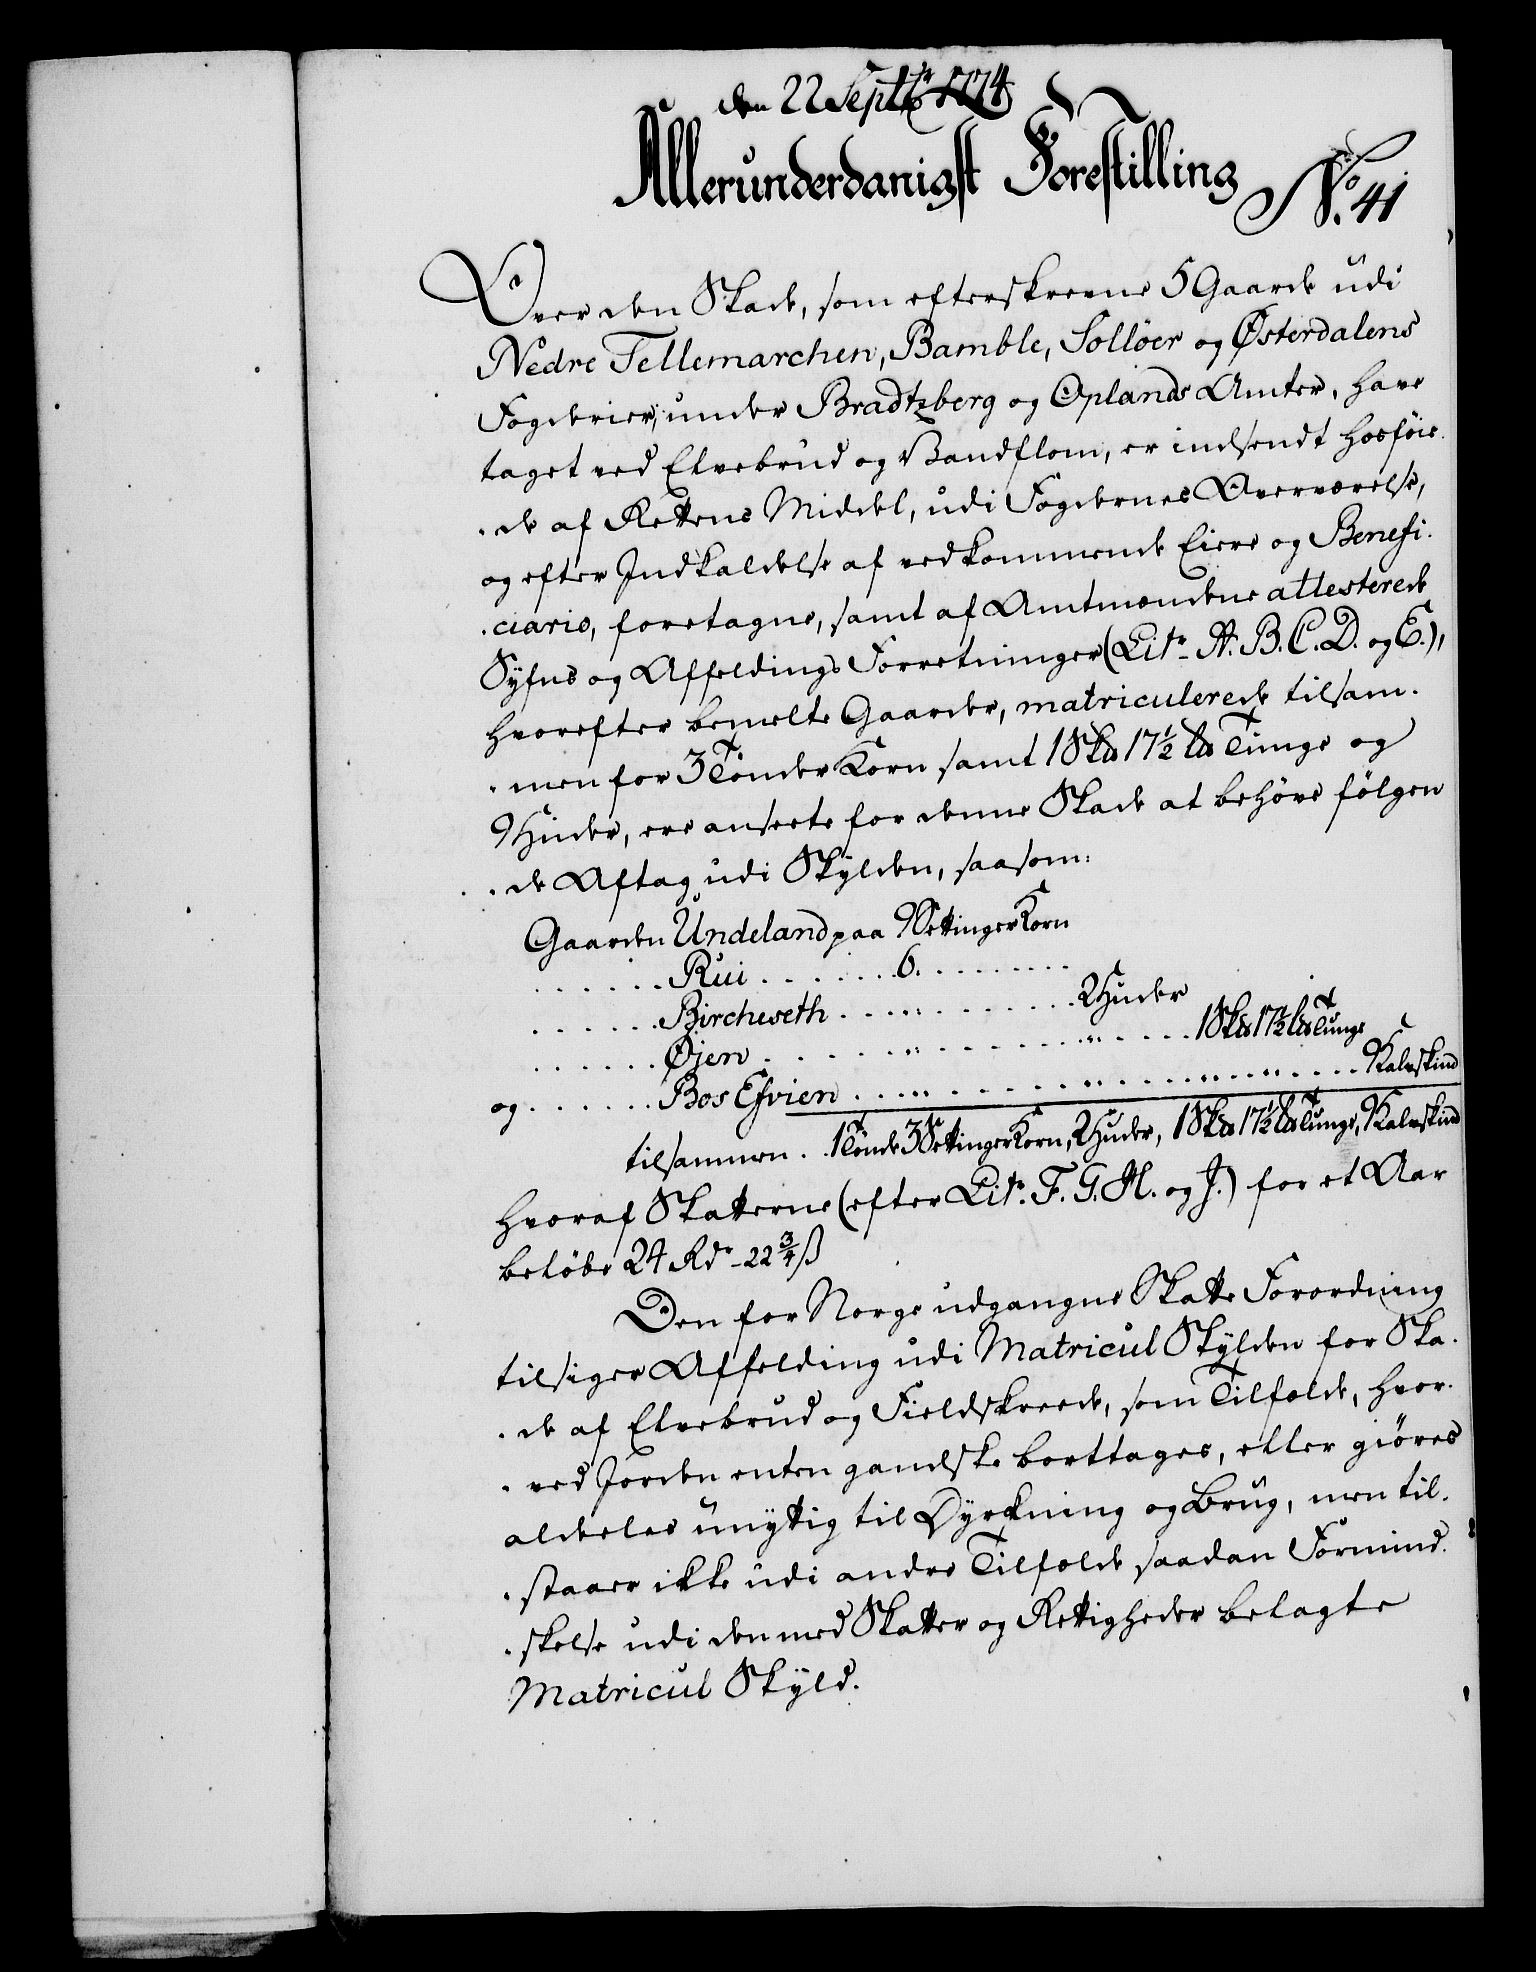 den 22 Septbr 1774
Allerunderdanigst Forestilling
No. 41
Over den Skade, som efterskrevne 5 Gaarde udi
Nedre Tellemarchen, Bamble, Solløer og Østerdalens
Fogderier, under Bradtzberg og Oplands Amter, have
taget ved Elvebrud og Vandflom, er indsendt hosføie-
-de af Rettens Middel, udi Fogdernes Overværelse,
og efter Indkaldelse af vedkommende Eiere og Benefi-
-ciario, foretagne, samt af Amtmændene attesterede
Syfns og Affeldings Forretninger (Litr. A. B. C. D. og E.),
hvorefter bemelte Gaarder, matriculerede tilsam-
-men for 3 Tønder Korn samt 1 Skd 17½ Ld Tunge og
9 Huder, ere anseete for denne Skade at behøve følgen
-de Aftag udi Skylden, saasom:
Gaarden Undeland paa 9 Settinger Korn
. . . . . . Rui . . . . . . . 6. . . . . . . . . .
. . . . . . Bircheseth . . . . „ . . . . . . . . 2 Huder
. . . . . . Øjen . . . . . . „ . . . . . . . „ . . . . 1 Skd 17½ Ld Tunge
og . . . . . . Bos Efvien . . . . „ . . . . . . . „ . . . . . „ . . . „ . . . . 9 Kalvskind
tilsammen . . 1 Tønde 3 Settinger Korn, 2 Huder, 1 Skd 17½ Ld Tunge, 9 Kalvskind
hvoraf Skatterne (efter Litr. F. G. H. og J.) for et Aar
beløbe 24 Rdr - 22 3/4 ß
Den for Norge udgangne Skatte Forordning
tilsiger Affelding udi Matricul Skylden for Ska-
-de af Elvebrud og Fieldskreede, som Tilfælde, hvor-
-ved Jorden enten gandske borttages, eller giøres
aldeeles unyttig til Dyrkning og Brug, men til-
-staaer ikke udi andre Tilfælde saadan Formind-
-skelse udi den med Skatter og Rettigheder belagte
Matricul Skyld.